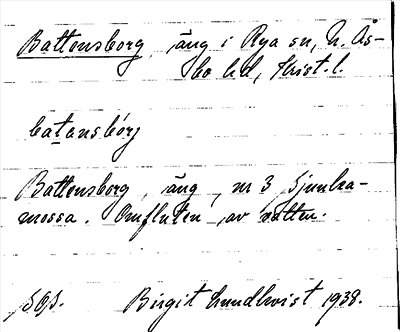 Battensborg, äng i Rya sn, N. Ås-
bo hd, Krist. l.
batansbórj
Battensborg, äng, nr 3 Sjunka-
mossa. Omfluten av vatten.
Birgit Lundkvist 1938.